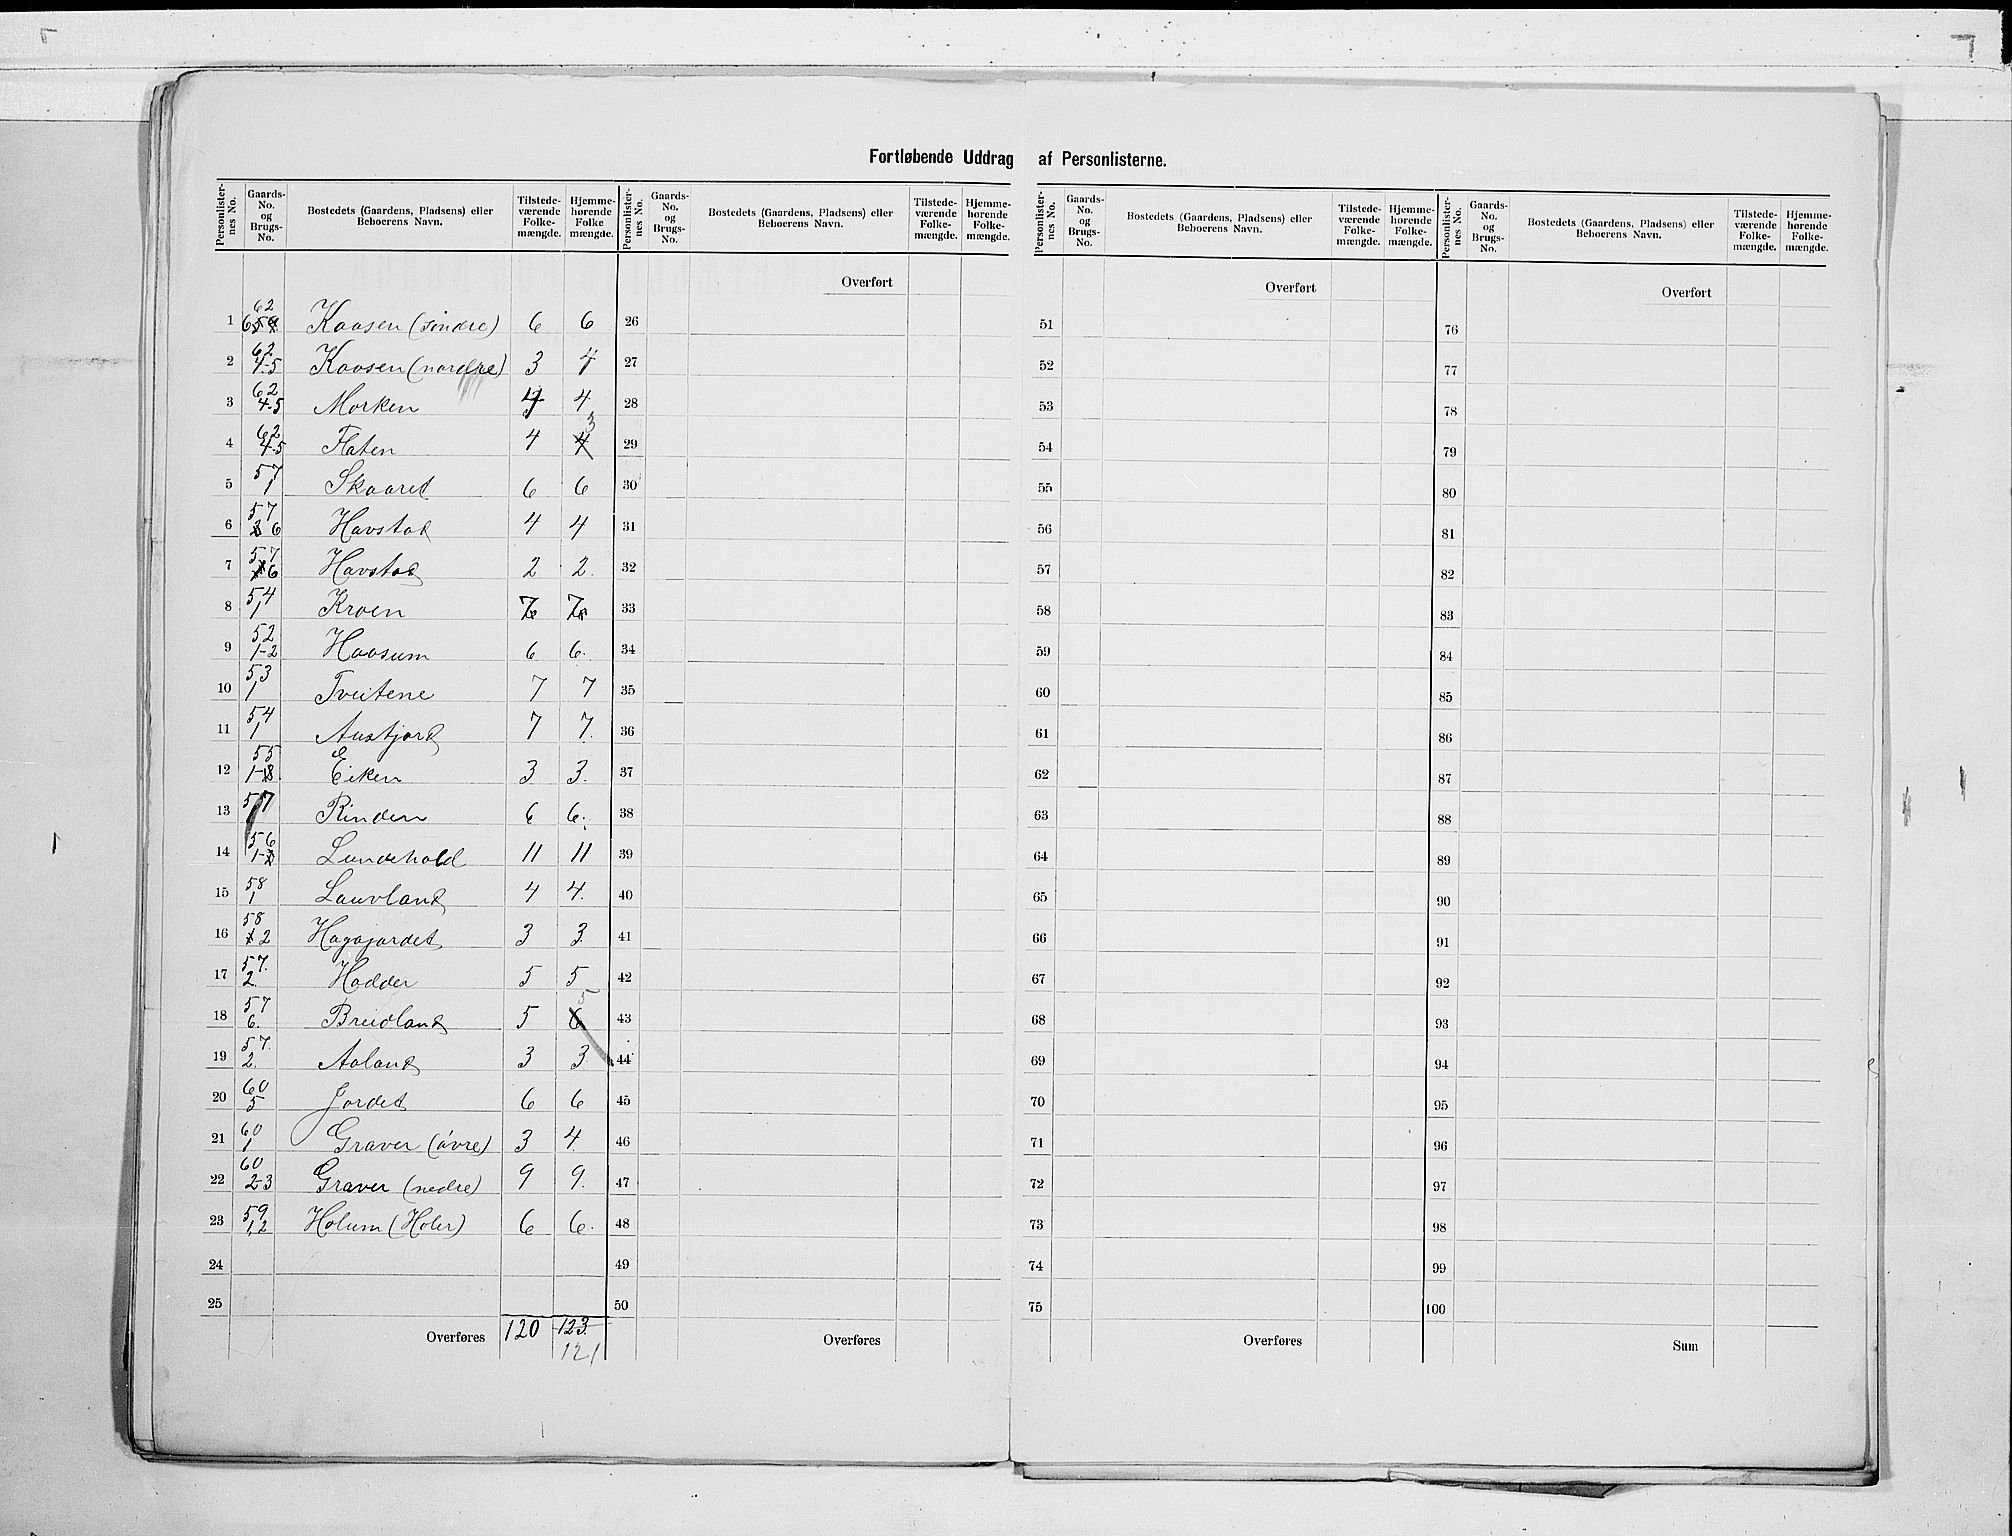 Fortløbende Uddrag af Personlisterne.
Personlister-nes No. Gaards-No. og Brugs-No. Bostedets (Gaardens, Pladsens) eller Beboerens Navn. Tilstede-værende Folke-mængde. Hjemme-hørende Folke-mængde.
1 62 Kaasen (søndre) 6 6
2 62 4-5 Kaasen (nordre) 3 4
3 62 4-5 Morken 4 4
4 62 4-5 Flaten 4 4 3
5 57 1 Skaaret 6 6
6 57 6 Havstad 4 4
7 57 6 Havstad 2 2.
8 54 1 Kroen 7 7
9 52 1-2 Haasum 6 6.
10 53 1 Tveitene 7 7
11 54 1 Austjord 7 7.
12 55 1-8. Eiken 3 3.
13 57 Rinden 6 6.
14 56 Lundehold 11 11
15 58 1 Lauvland 4 4.
16 58 2 Hagajordet 3 3.
17 57. 2. Hadder 5 5
18 57 6. Breidland 5 6 5
19 57. 2. Aaland 3 3
20 60 5 Jordet 6 6
21 60 1 Graver (øvre) 3 4.
22 60 2-3 Graver (nedre) 9 9.
23 59 1,2 Holum (Holer) 6 6.
24
25
Overføres 120 123.
121
Personlister-nes No. Gaards-No. og Brugs-No. Bostedets (Gaardens, Pladsens) eller Beboerens Navn. Tilstede-værende Folke-mængde. Hjemme-hørende Folke-mængde.
Overført
26
27
28
29
30
31
32
33
34
35
36
37
38
39
40
41
42
43
44
45
46
47
48
49
50
Overføres
Personlister-nes No. Gaards-No. og Brugs-No. Bostedets (Gaardens, Pladsens) eller Beboerens Navn. Tilstede-værende Folke-mængde. Hjemme-hørende Folke-mængde.
Overført
51
52
53
54
55
56
57
58
59
60
61
62
63
64
65
66
67
68
69
70
71
72
73
74
75
Overføres
Personlister-nes No. Gaards-No. og Brugs-No. Bostedets (Gaardens, Pladsens) eller Beboerens Navn. Tilstede-værende Folke-mængde. Hjemme-hørende Folke-mængde.
Overført
76
77
78
79
80
81
82
83
84
85
86
87
88
89
90
91
92
93
94
95
96
97
98
99
100
Sum